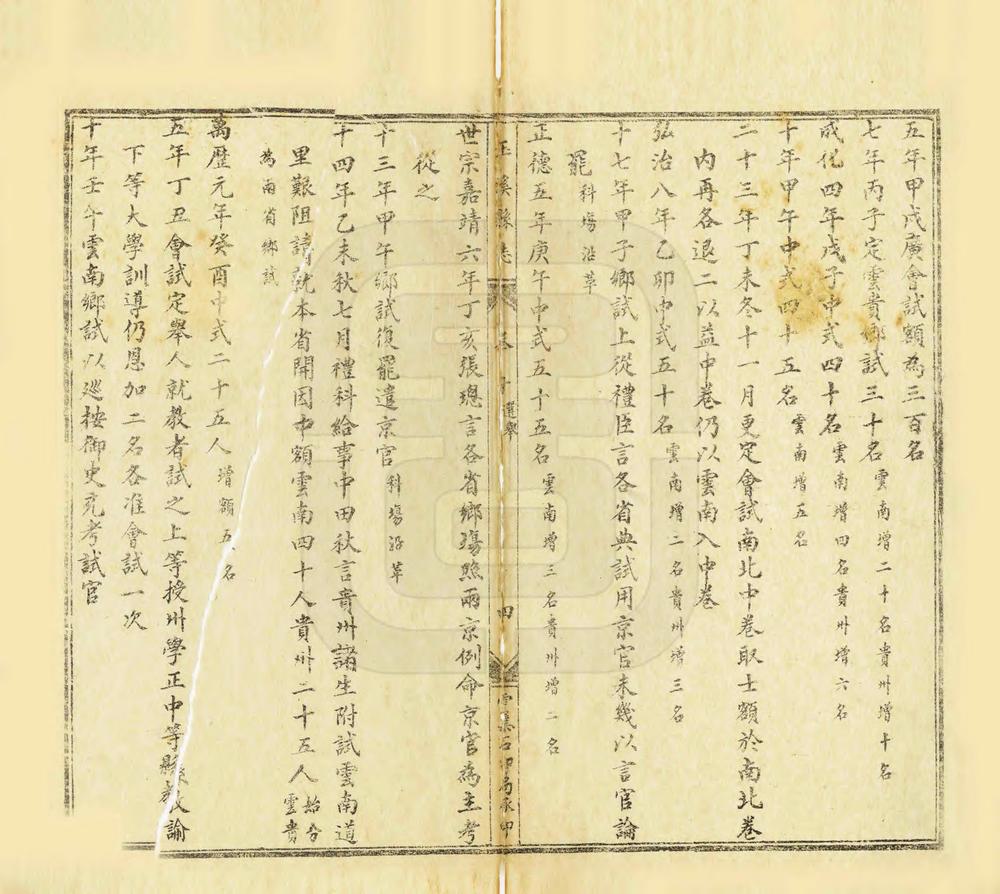 五年甲戌廣會試額為三百名
七年丙子定雲貴鄉試三十名雲南增二十名貴州增十名
成化四年戊子中式四十名雲南增四名貴州增六名
十年甲午中式四十五名雲南增五名
二十三年丁未冬十一月更定會試南北中卷取士額於南北卷
內再各退二以益中卷仍以雲南入中卷
弘治八年乙卯中式五十名雲南增二名貴州增三名
十七年甲子鄉試上從禮臣言各省典試用京官未幾以言官論
罷科場沿革
正德五年庚午中式五十五名雲南增三名貴州增二名
玉溪縣志 卷十選舉 四 雲集石印局承印
世宗嘉靖六年丁亥張璁言各省鄉場照兩京例命京官為主考
從之
十三年甲午鄉試復罷遣京官科場沿革
十四年乙未秋七月禮科給事中田秋言貴州諸生附試雲南道
里艱阻請就本省開因中額雲南四十人貴州二十五人始分雲貴
為兩省鄉試
萬歷元年癸酉中式二十五人增額五名
五年丁丑會試定舉人就教者試之上等授州學正中等縣教諭
下等大學訓導仍恩加二名各准會試一次
十年壬午雲南鄉試以巡按御史充考試官